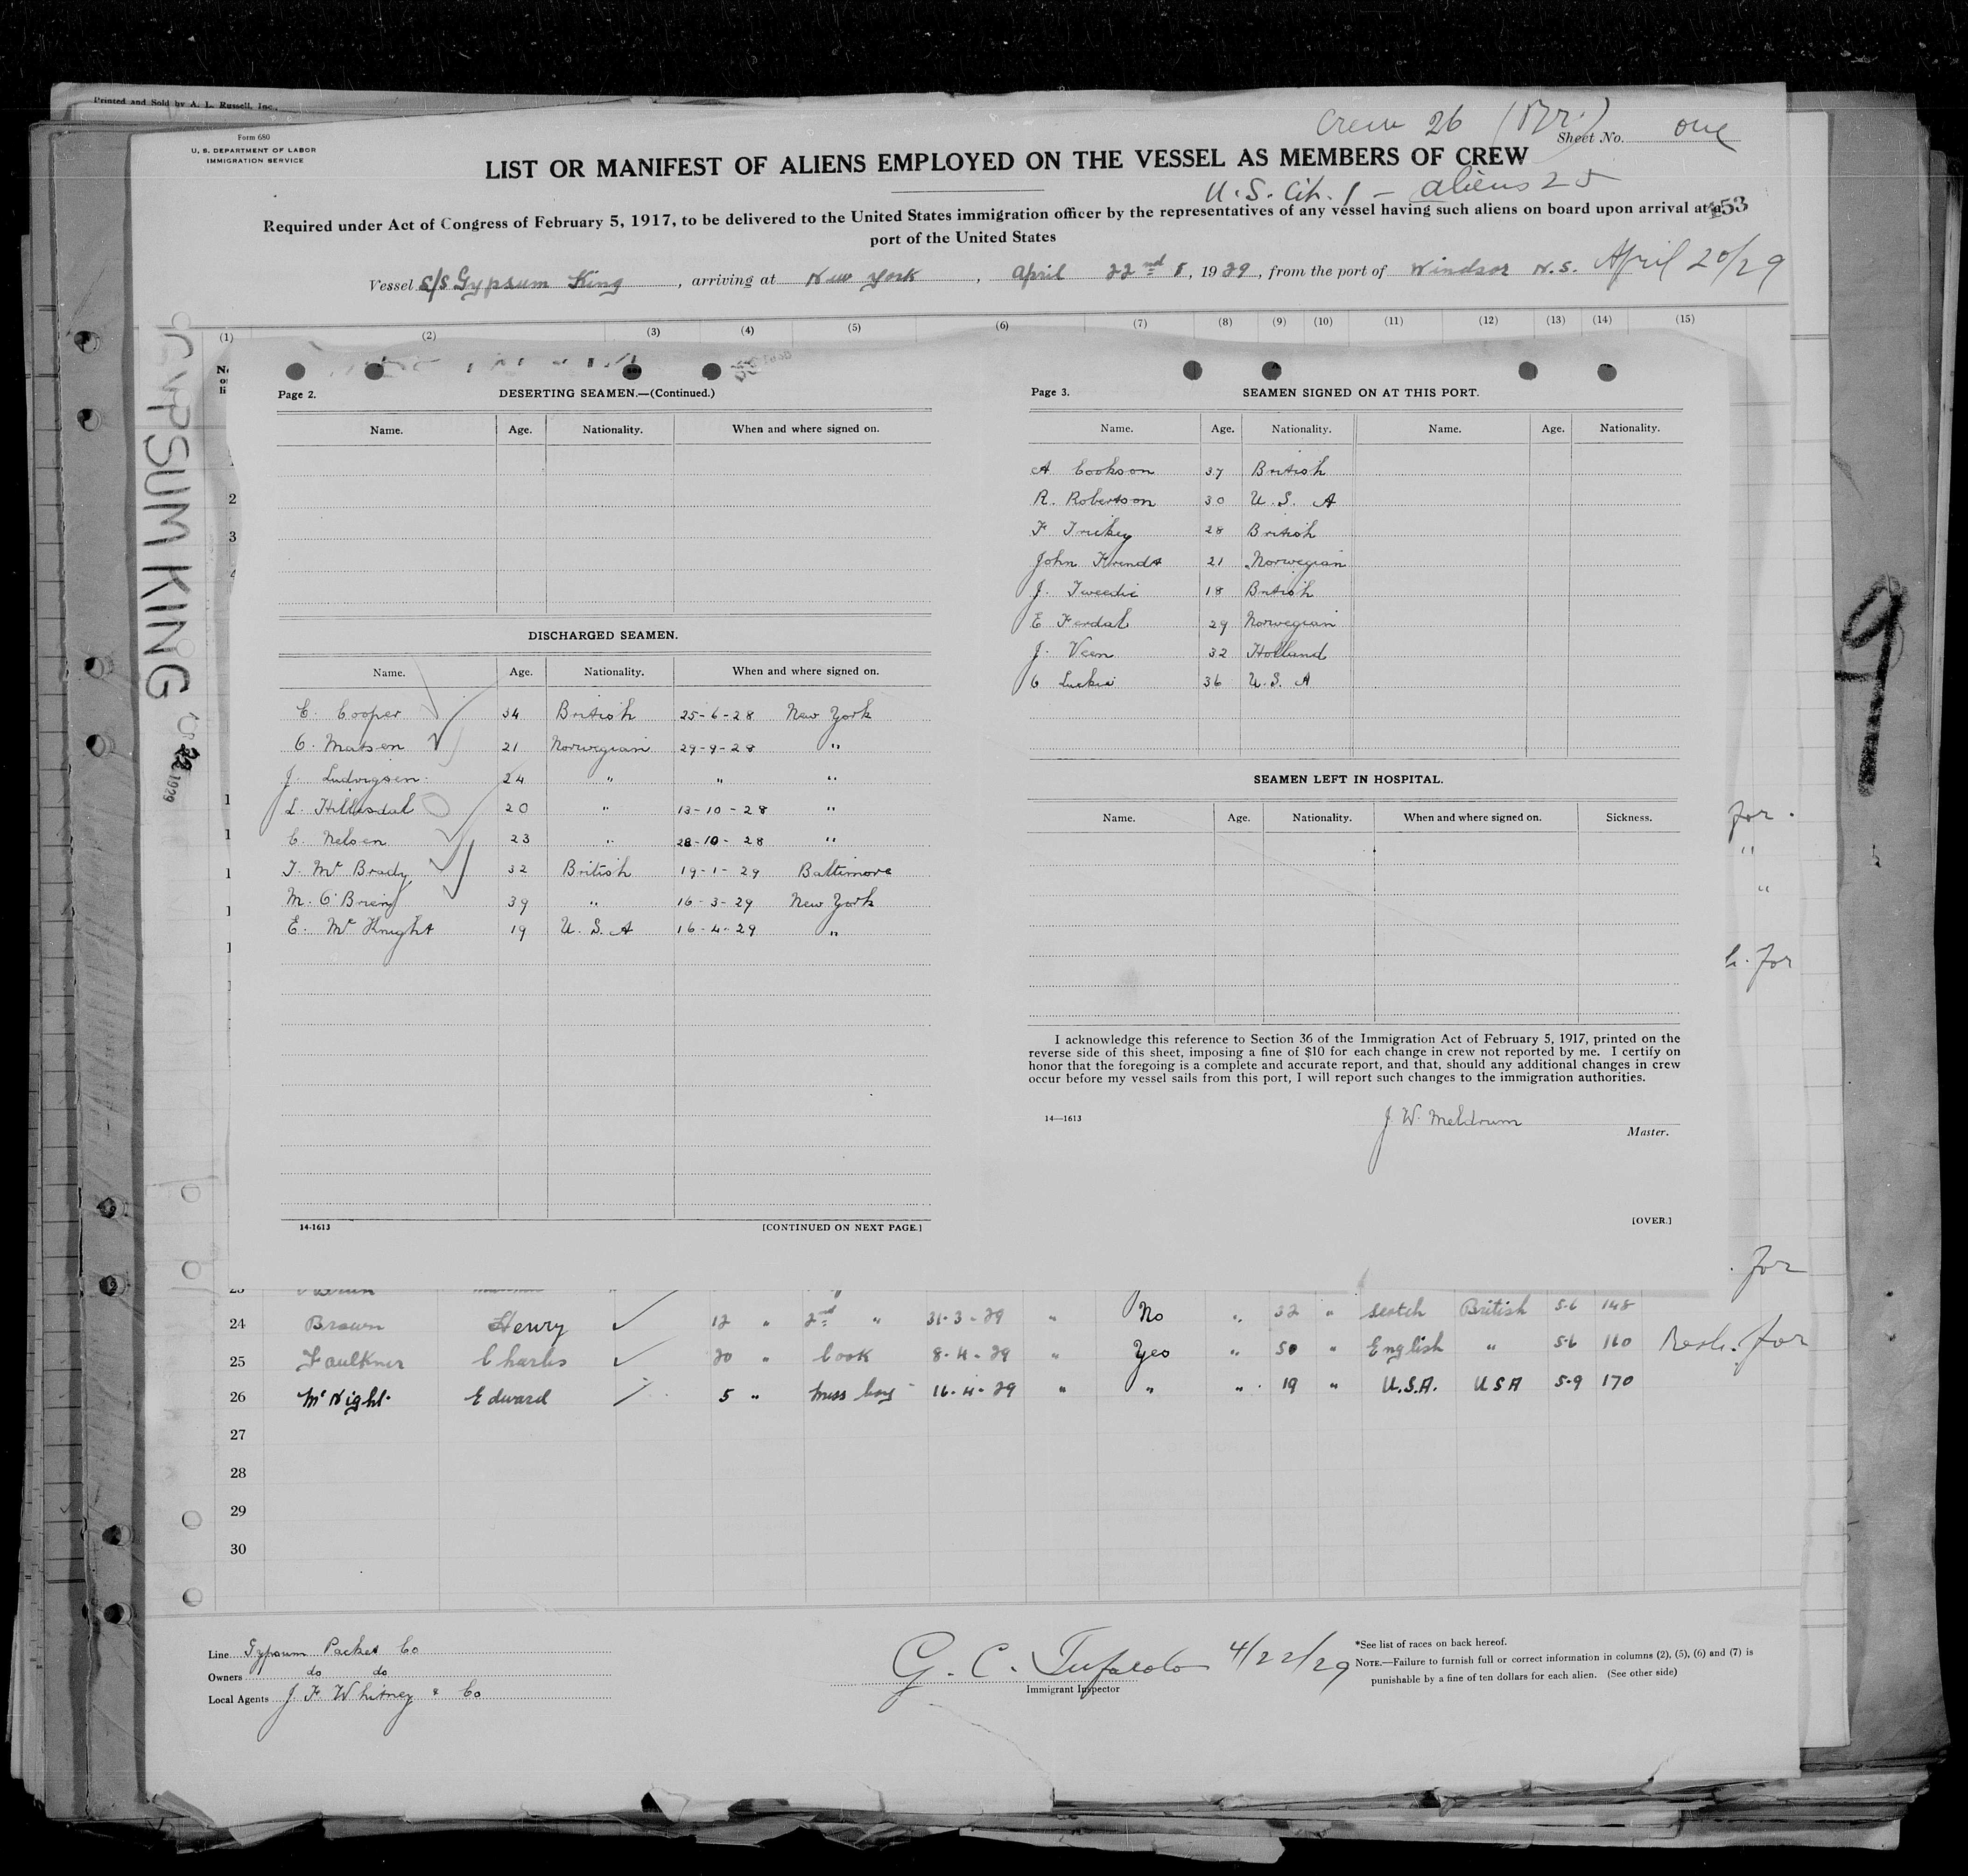 Printed and Sold by A. L. Russell, Inc.,
Form 680
U. S. DEPARTMENT OF LABOR
IMMIGRATION SERVICE
Crew 26 (Br.)
Sheet No. one
LIST OR MANIFEST OF ALIENS EMPLOYED ON THE VESSEL AS MEMBERS OF CREW
U.S. Cit. 1 - aliens 25
Required under Act of Congress of February 5, 1917, to be delivered to the United States immigration officer by the representatives of any vessel having such aliens on board upon arrival at a
port of the United States
53
Vessel S/S Gypsum King, arriving at New York, April 22nd, 1929, from the port of Windsor N.S. April 20/29
(1) (2) (3) (4) (5) (6) (7) (8) (9) (10) (11) (12) (13) (14) (15)
GYPSUM KING
22 1929
9
Page 2. DESERTING SEAMEN.—(Continued.)
Name. Age. Nationality. When and where signed on.
DISCHARGED SEAMEN.
Name. Age. Nationality. When and where signed on.
C. Cooper 34 British 25-6-28 New York
O. Matsen 21 Norwegian 29-9-28 "
J. Ludvigsen 24 " " "
L. Hillesdal 20 " 13-10-28 "
C. Nelsen 23 " 28-10-28 "
T. Mc Brady 32 British 19-1-29 Baltimore
M. O'Brien 39 " 16-3-29 New York
E. Mc Knight 19 U.S.A 16-4-29 "
14-1613 [CONTINUED ON NEXT PAGE.]
Page 3. SEAMEN SIGNED ON AT THIS PORT.
Name. Age. Nationality. Name. Age. Nationality.
A Cookson 37 British
R. Robertson 30 U.S. A
F Trickey 28 British
John 21 Norwegian
J. Tweedie 18 British
E Ferdal 29 Norwegian
J. Veen 32 Holland
36 U.S. A
SEAMEN LEFT IN HOSPITAL.
Name. Age. Nationality. When and where signed on. Sickness.
I acknowledge this reference to Section 36 of the Immigration Act of February 5, 1917, printed on the
reverse side of this sheet, imposing a fine of $10 for each change in crew not reported by me. I certify on
honor that the foregoing is a complete and accurate report, and that, should any additional changes in crew
occur before my vessel sails from this port, I will report such changes to the immigration authorities.
14—1613
J W. Meldrum
Master.
[OVER.]
for.
"
"
for
for
24 Brown Henry 12 " 2nd " 31-3-29 " No " 32 " Scotch British 5-6 148
25 Faulkner Charles 20 " Cook 8-4-29 " Yes " 50 " English " 5-6 160 for
26 McNight Edward 5 " Mess boy 16-4-29 " " " 19 " U.S.A. USA 5-9 170
27
28
29
30
Line Gypsum Packet Co
Owners do do
Local Agents J F Whitney & Co
G. C. 4/22/29
Immigrant Inspector
*See list of races on back hereof.
NOTE.—Failure to furnish full or correct information in columns (2), (5), (6) and (7) is
punishable by a fine of ten dollars for each alien. (See other side)